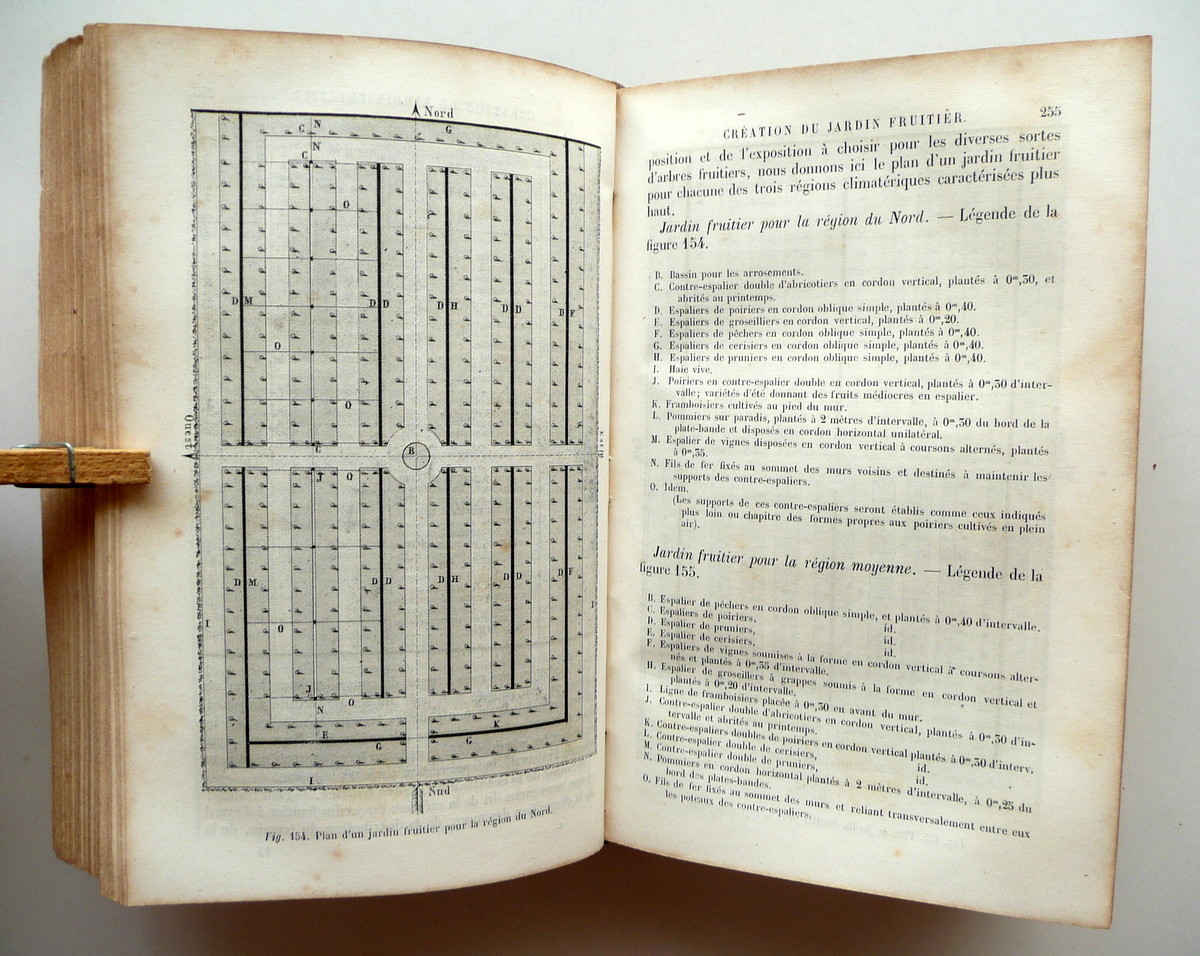 Nord
N
C
G
N
C
O
D M
D D
D H
D D
D F
O
O
Ouest
C
B
J
O
D M
D D
D H
D D
D F
I
I
O
J
N
O
E
K
G
G
I
Sud
Fig. 154. Plan d'un jardin fruitier pour la région du Nord.
CRÉATION DU JARDIN FRUITIER. 255
position et de l'exposition à choisir pour les diverses sortes
d'arbres fruitiers, nous donnons ici le plan d'un jardin fruitier
pour chacune des trois régions climatériques caractérisées plus
haut.
Jardin fruitier pour la région du Nord. — Légende de la
figure 154.
B. Bassin pour les arrosements.
C. Contre-espalier double d'abricotiers en cordon vertical, plantés à 0m,30, et
abrités au printemps.
D. Espaliers de poiriers en cordon oblique simple, plantés à 0m,40.
E. Espaliers de groseilliers en cordon vertical, plantés à 0m,20.
F. Espaliers de pêchers en cordon oblique simple, plantés à 0m,40.
G. Espaliers de cerisiers en cordon oblique simple, plantés à 0m,40.
H. Espaliers de pruniers en cordon oblique simple, plantés à 0m,40.
I. Haie vive.
J. Poiriers en contre-espalier double en cordon vertical, plantés à 0m,30 d'inter-
valle; variétés d'été donnant des fruits médiocres en espalier.
K. Framboisiers cultivés au pied du mur.
L. Pommiers sur paradis, plantés à 2 mètres d'intervalle, à 0m,30 du bord de la
plate-bande et disposés en cordon horizontal unilatéral.
M. Espalier de vignes disposées en cordon vertical à coursons alternés, plantés
à 0m,35.
N. Fils de fer fixés au sommet des murs voisins et destinés à maintenir les
supports des contre-espaliers.
O. Idem.
(Les supports de ces contre-espaliers seront établis comme ceux indiqués
plus loin ou chapitre des formes propres aux poiriers cultivés en plein
air).
Jardin fruitier pour la région moyenne. — Légende de la
figure 155.
B. Espalier de pêchers en cordon oblique simple, et plantés à 0m,40 d'intervalle.
C. Espaliers de poiriers, id.
D. Espalier de pruniers, id.
E. Espalier de cerisiers, id.
F. Espaliers de vignes soumises à la forme en cordon vertical à coursons alter-
nés et plantés à 0m,35 d'intervalle.
H. Espalier de groseillers à grappes soumis à la forme en cordon vertical et
plantés à 0m,20 d'intervalle.
I. Ligne de framboisiers placée à 0m,30 en avant du mur.
J. Contre-espalier double d'abricotiers en cordon vertical, plantés à 0m,30 d'in-
tervalle et abrités au printemps.
K. Contre-espaliers doubles de poiriers en cordon vertical plantés à 0m,30 d'interv.
L. Contre-espalier double de cerisiers, id.
M. Contre-espalier double de pruniers, id.
N. Pommiers en cordon horizontal plantés à 2 mètres d'intervalle, à 0m,25 du
bord des plates-bandes.
O. Fils de fer fixés au sommet des murs et reliant transversalement entre eux
les poteaux des contre-espaliers.